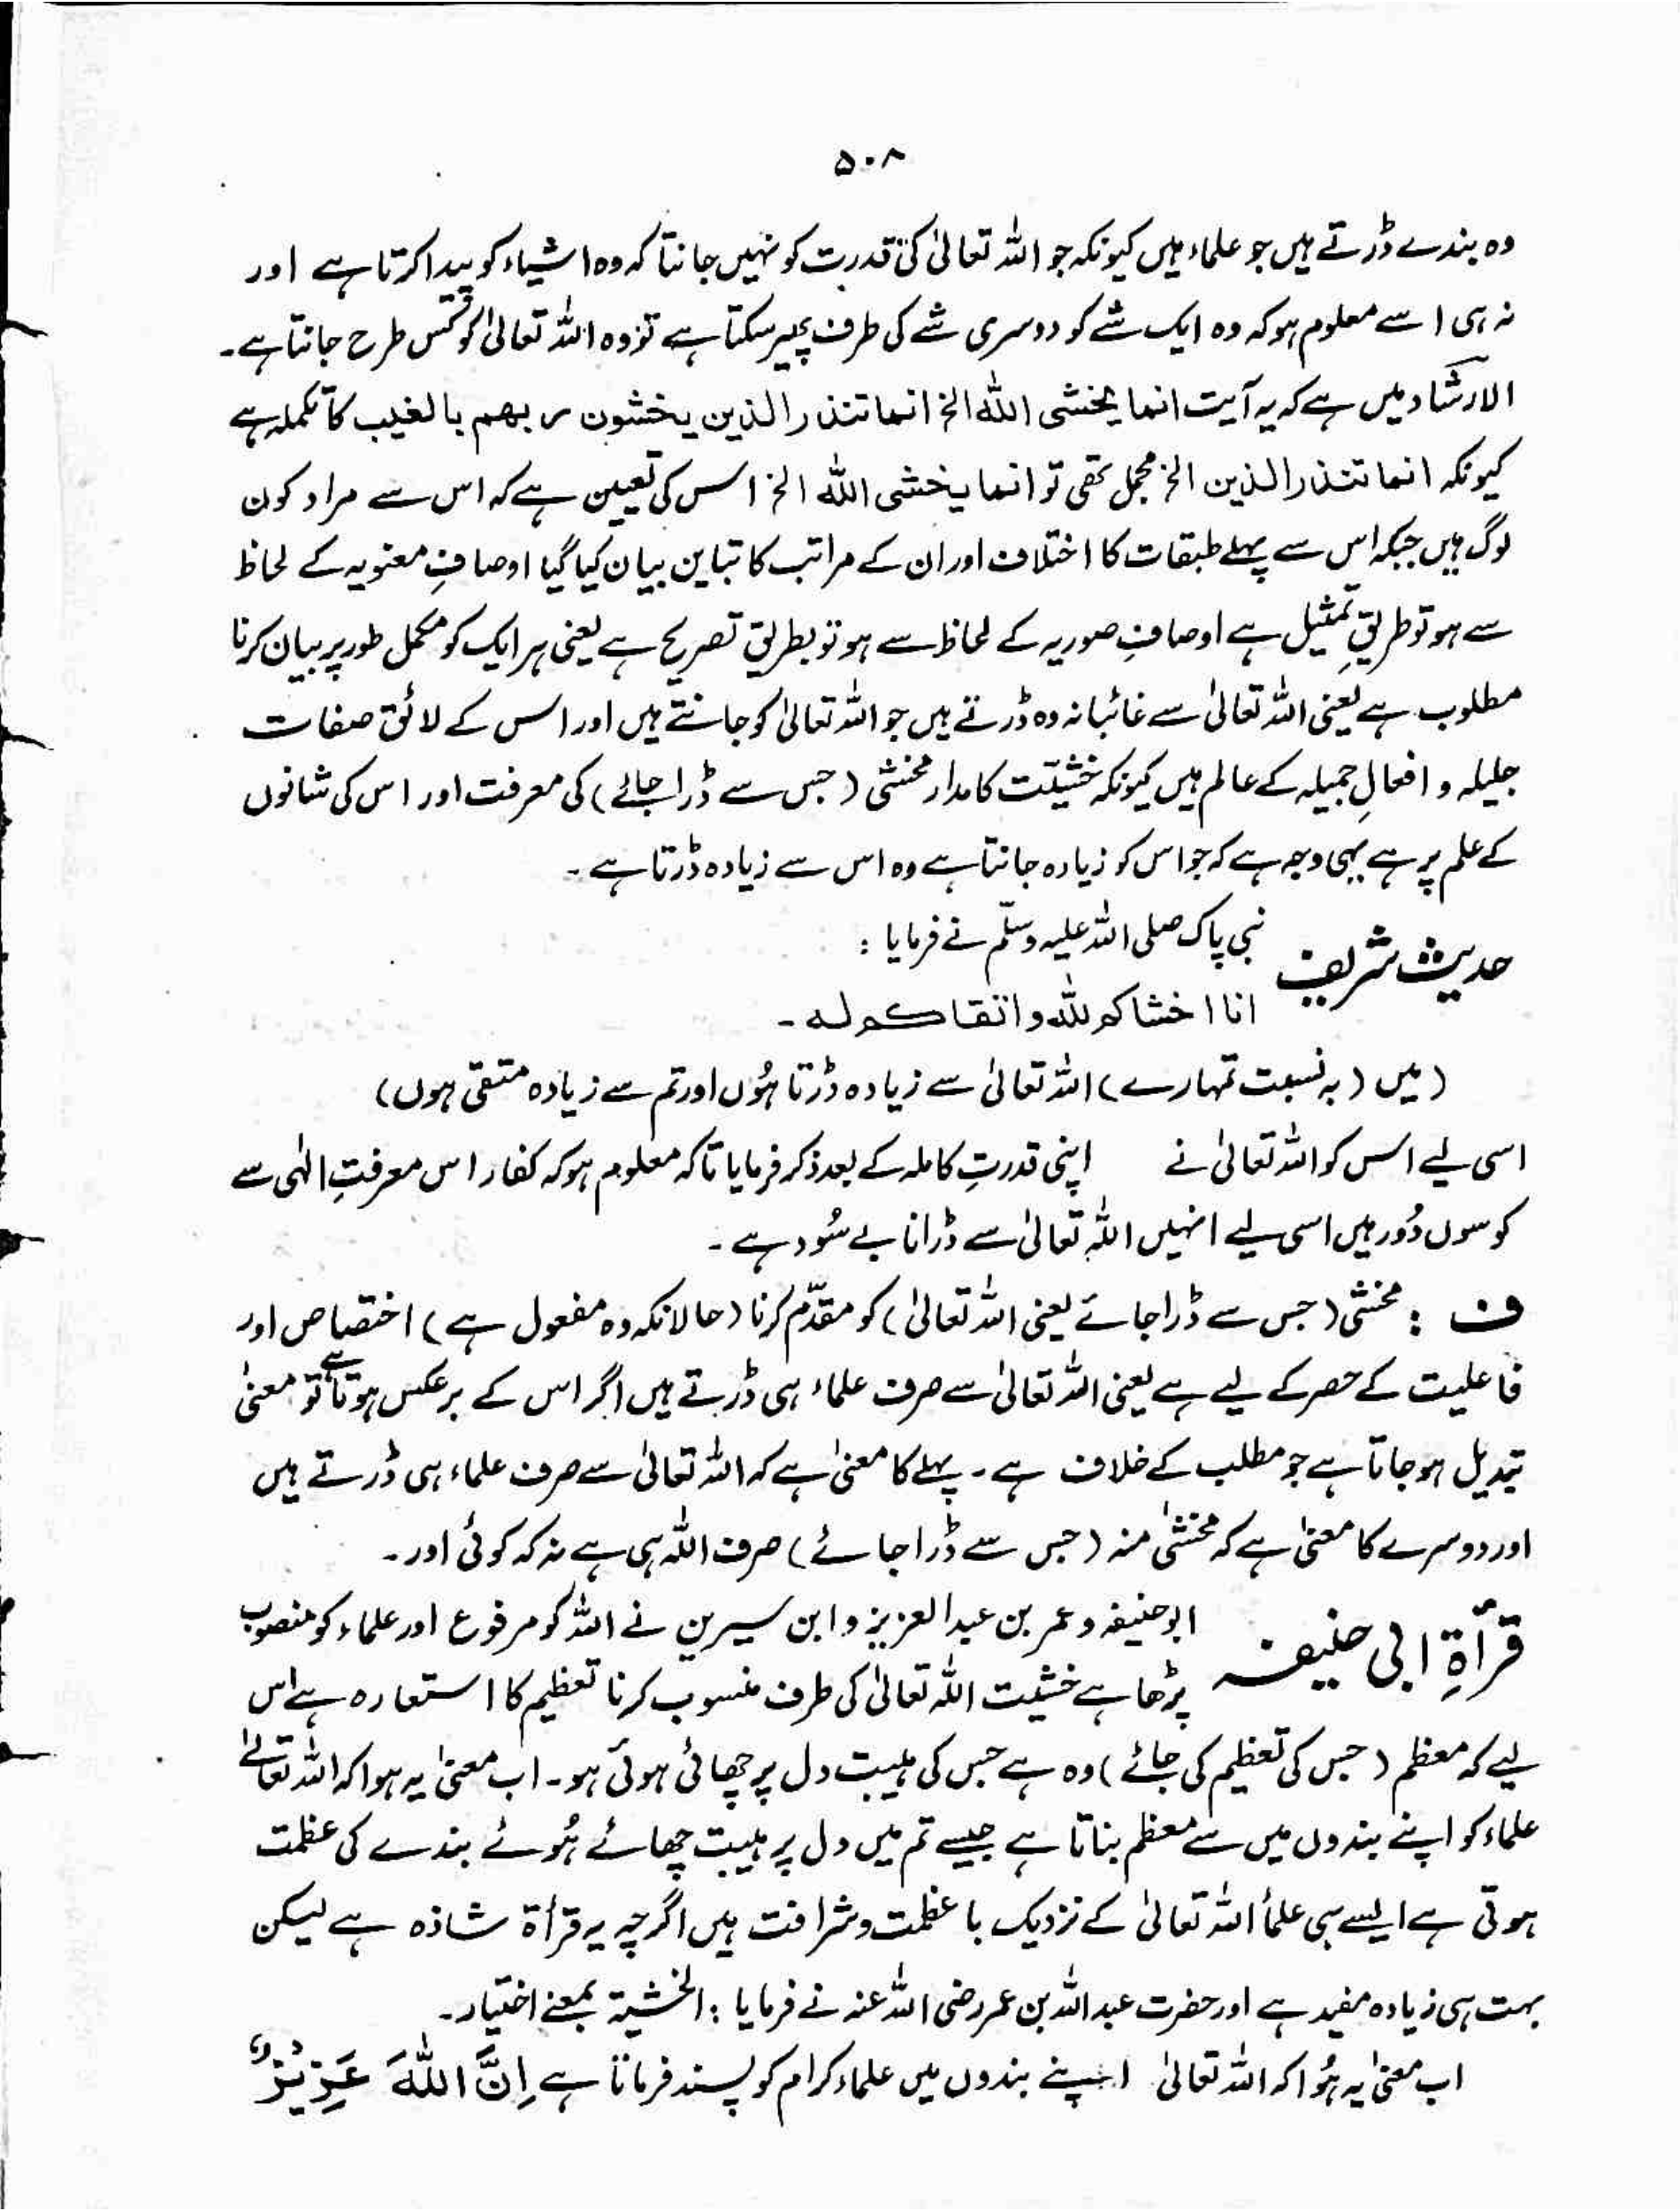 ۵۰۸
وہ بندے ڈرتے ہیں جو علماء ہیں کیونکہ جو اللہ تعالیٰ کی قدرت کو نہیں جانتا کہ وہ اشیاء کو پیدا کرتا ہے اور
نہ ہی اسے معلوم ہو کہ وہ ایک شے کو دوسری شے کی طرف پھیر سکتا ہے تو وہ اللہ تعالیٰ کو کس طرح جانتا ہے۔
الارشاد میں ہے کہ یہ آیت انما یخشی اللہ الخ انما تنذر الذین یخشون ربھم بالغیب کا تکملہ ہے
کیونکہ انما تنذر الذین الخ مجمل تھی تو انما یخشی اللہ الخ اس کی تعیین ہے کہ اس سے مراد کون
لوگ ہیں جبکہ اس سے پہلے طبقات کا اختلاف اور ان کے مراتب کا تباین بیان کیا گیا اوصافِ معنویہ کے لحاظ
سے ہو تو طریقِ تمثیل ہے اوصافِ صوریہ کے لحاظ سے ہو تو بطریق تصریح ہے یعنی ہر ایک کو مکمل طور پر بیان کرنا
مطلوب ہے یعنی اللہ تعالیٰ سے غائبانہ وہ ڈرتے ہیں جو اللہ تعالیٰ کو جانتے ہیں اور اس کے لائق صفات
جلیلہ و افعالِ جمیلہ کے عالم ہیں کیونکہ خشیّت کا مدار مخشی (جس سے ڈرا جائے) کی معرفت اور اس کی شانوں
کے علم پر ہے یہی وجہ ہے کہ جو اس کو زیادہ جانتا ہے وہ اس سے زیادہ ڈرتا ہے۔
حدیث شریف نبی پاک صلی اللہ علیہ وسلّم نے فرمایا :
انا اخشاکم للہ و اتقاکم لہ۔
(میں (بہ نسبت تمہارے) اللہ تعالیٰ سے زیادہ ڈرتا ہُوں اور تم سے زیادہ متقی ہوں)
اسی لیے اس کو اللہ تعالیٰ نے اپنی قدرتِ کاملہ کے بعد ذکر فرمایا تاکہ معلوم ہو کہ کفار اس معرفتِ الٰہی سے
کوسوں دُور ہیں اسی لیے انہیں اللہ تعالیٰ سے ڈرانا بے سُود ہے۔
ف : مخشی (جس سے ڈرا جائے یعنی اللہ تعالیٰ) کو مقدّم کرنا (حالانکہ وہ مفعول ہے) اختصاص اور
فاعلیت کے حصر کے لیے ہے یعنی اللہ تعالیٰ سے صرف علماء ہی ڈرتے ہیں اگر اس کے برعکس ہوتا ہے تو معنیٰ
تبدیل ہو جاتا ہے جو مطلب کے خلاف ہے۔ پہلے کا معنیٰ ہے کہ اللہ تعالیٰ سے صرف علماء ہی ڈرتے ہیں
اور دوسرے کا معنیٰ ہے کہ مخشیٰ منہ (جس سے ڈرا جائے) صرف اللہ ہی ہے نہ کہ کوئی اور۔
قرآۃِ ابی حنیفہ ابوحنیفہ و عمر بن عبدالعزیز و ابن سیرین نے اللہ کو مرفوع اور علماء کو منصوب
پڑھا ہے خشیت اللہ تعالیٰ کی طرف منسوب کرنا تعظیم کا استعارہ ہے اس
لیے کہ معظم (جس کی تعظیم کی جائے) وہ ہے جس کی ہیبت دل پر چھائی ہوئی ہو۔ اب معنیٰ یہ ہوا کہ اللہ تعالےٰ
علماء کو اپنے بندوں میں سے معظم بناتا ہے جیسے تم میں دل پر ہیبت چھائے ہُوئے بندے کی عظمت
ہوتی ہے ایسے ہی علمأ اللہ تعالیٰ کے نزدیک با عظمت و شرافت ہیں اگرچہ یہ قرأۃ شاذہ ہے لیکن
بہت ہی زیادہ مفید ہے اور حضرت عبد اللہ بن عمر رضی اللہ عنہ نے فرمایا : الخشیۃ بمعنے اختیار۔
اب معنیٰ یہ ہُوا کہ اللہ تعالیٰ اپنے بندوں میں علماء کرام کو پسند فرماتا ہے اِنَّ اللّٰہَ عَزِیْزٌ